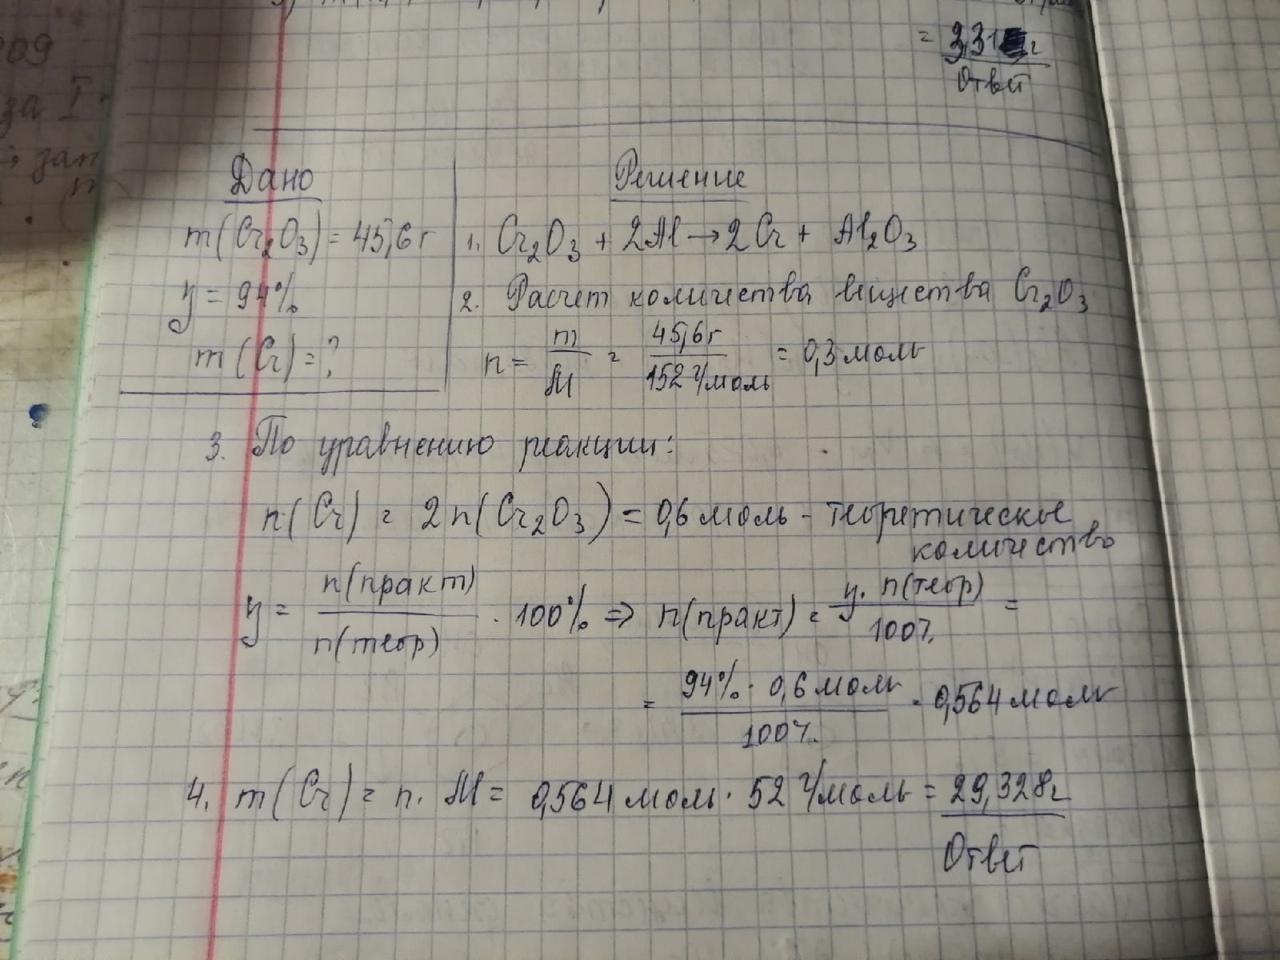 = 3,31 г
Ответ
209
за I
зап
Дано
Решение
m(Cr₂O₃) = 45,6 г
1. Cr₂O₃ + 2Al → 2Cr + Al₂O₃
y = 94%
2. Расчет количества вещества Cr₂O₃
m(Cr) = ?
n = m/M = 45,6 г / 152 г/моль = 0,3 моль
3. По уравнению реакции:
n(Cr) = 2n(Cr₂O₃) = 0,6 моль - теоретическое
количество
y = n(практ) / n(теор) · 100% => n(практ) = y · n(теор) / 100% =
= 94% · 0,6 моль / 100% = 0,564 моль
4. m(Cr) = n · M = 0,564 моль · 52 г/моль = 29,328 г
Ответ